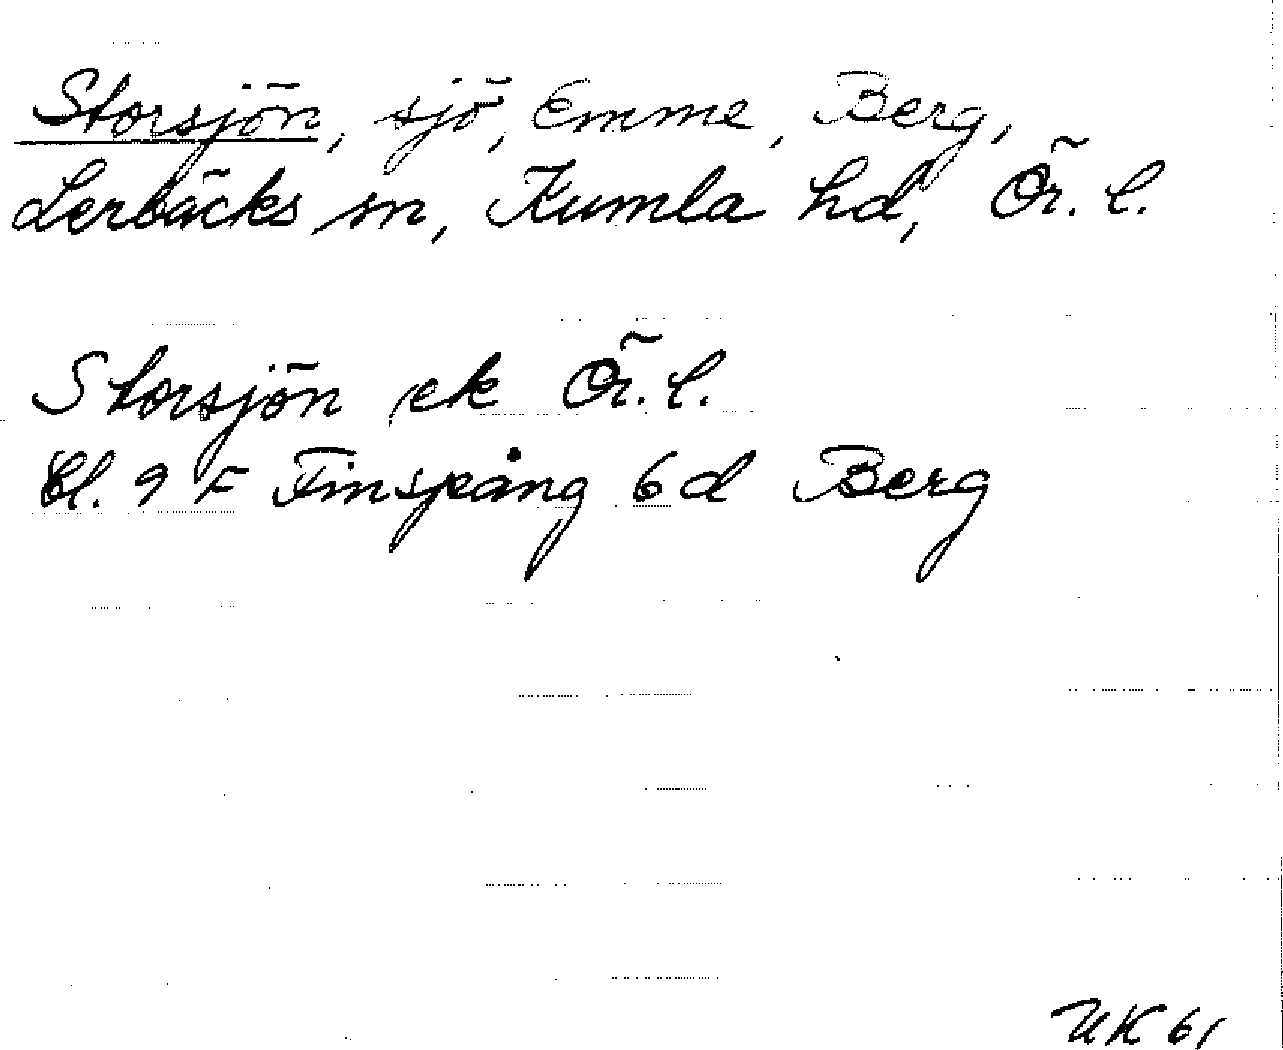 Storsjön, sjö, Emme, Berg,
Lerbäcks sn, Kumla hd, Ör. l.
Storsjön ek Ör. l.
Bl. 9 F Finspång 6 d Berg
UK 61